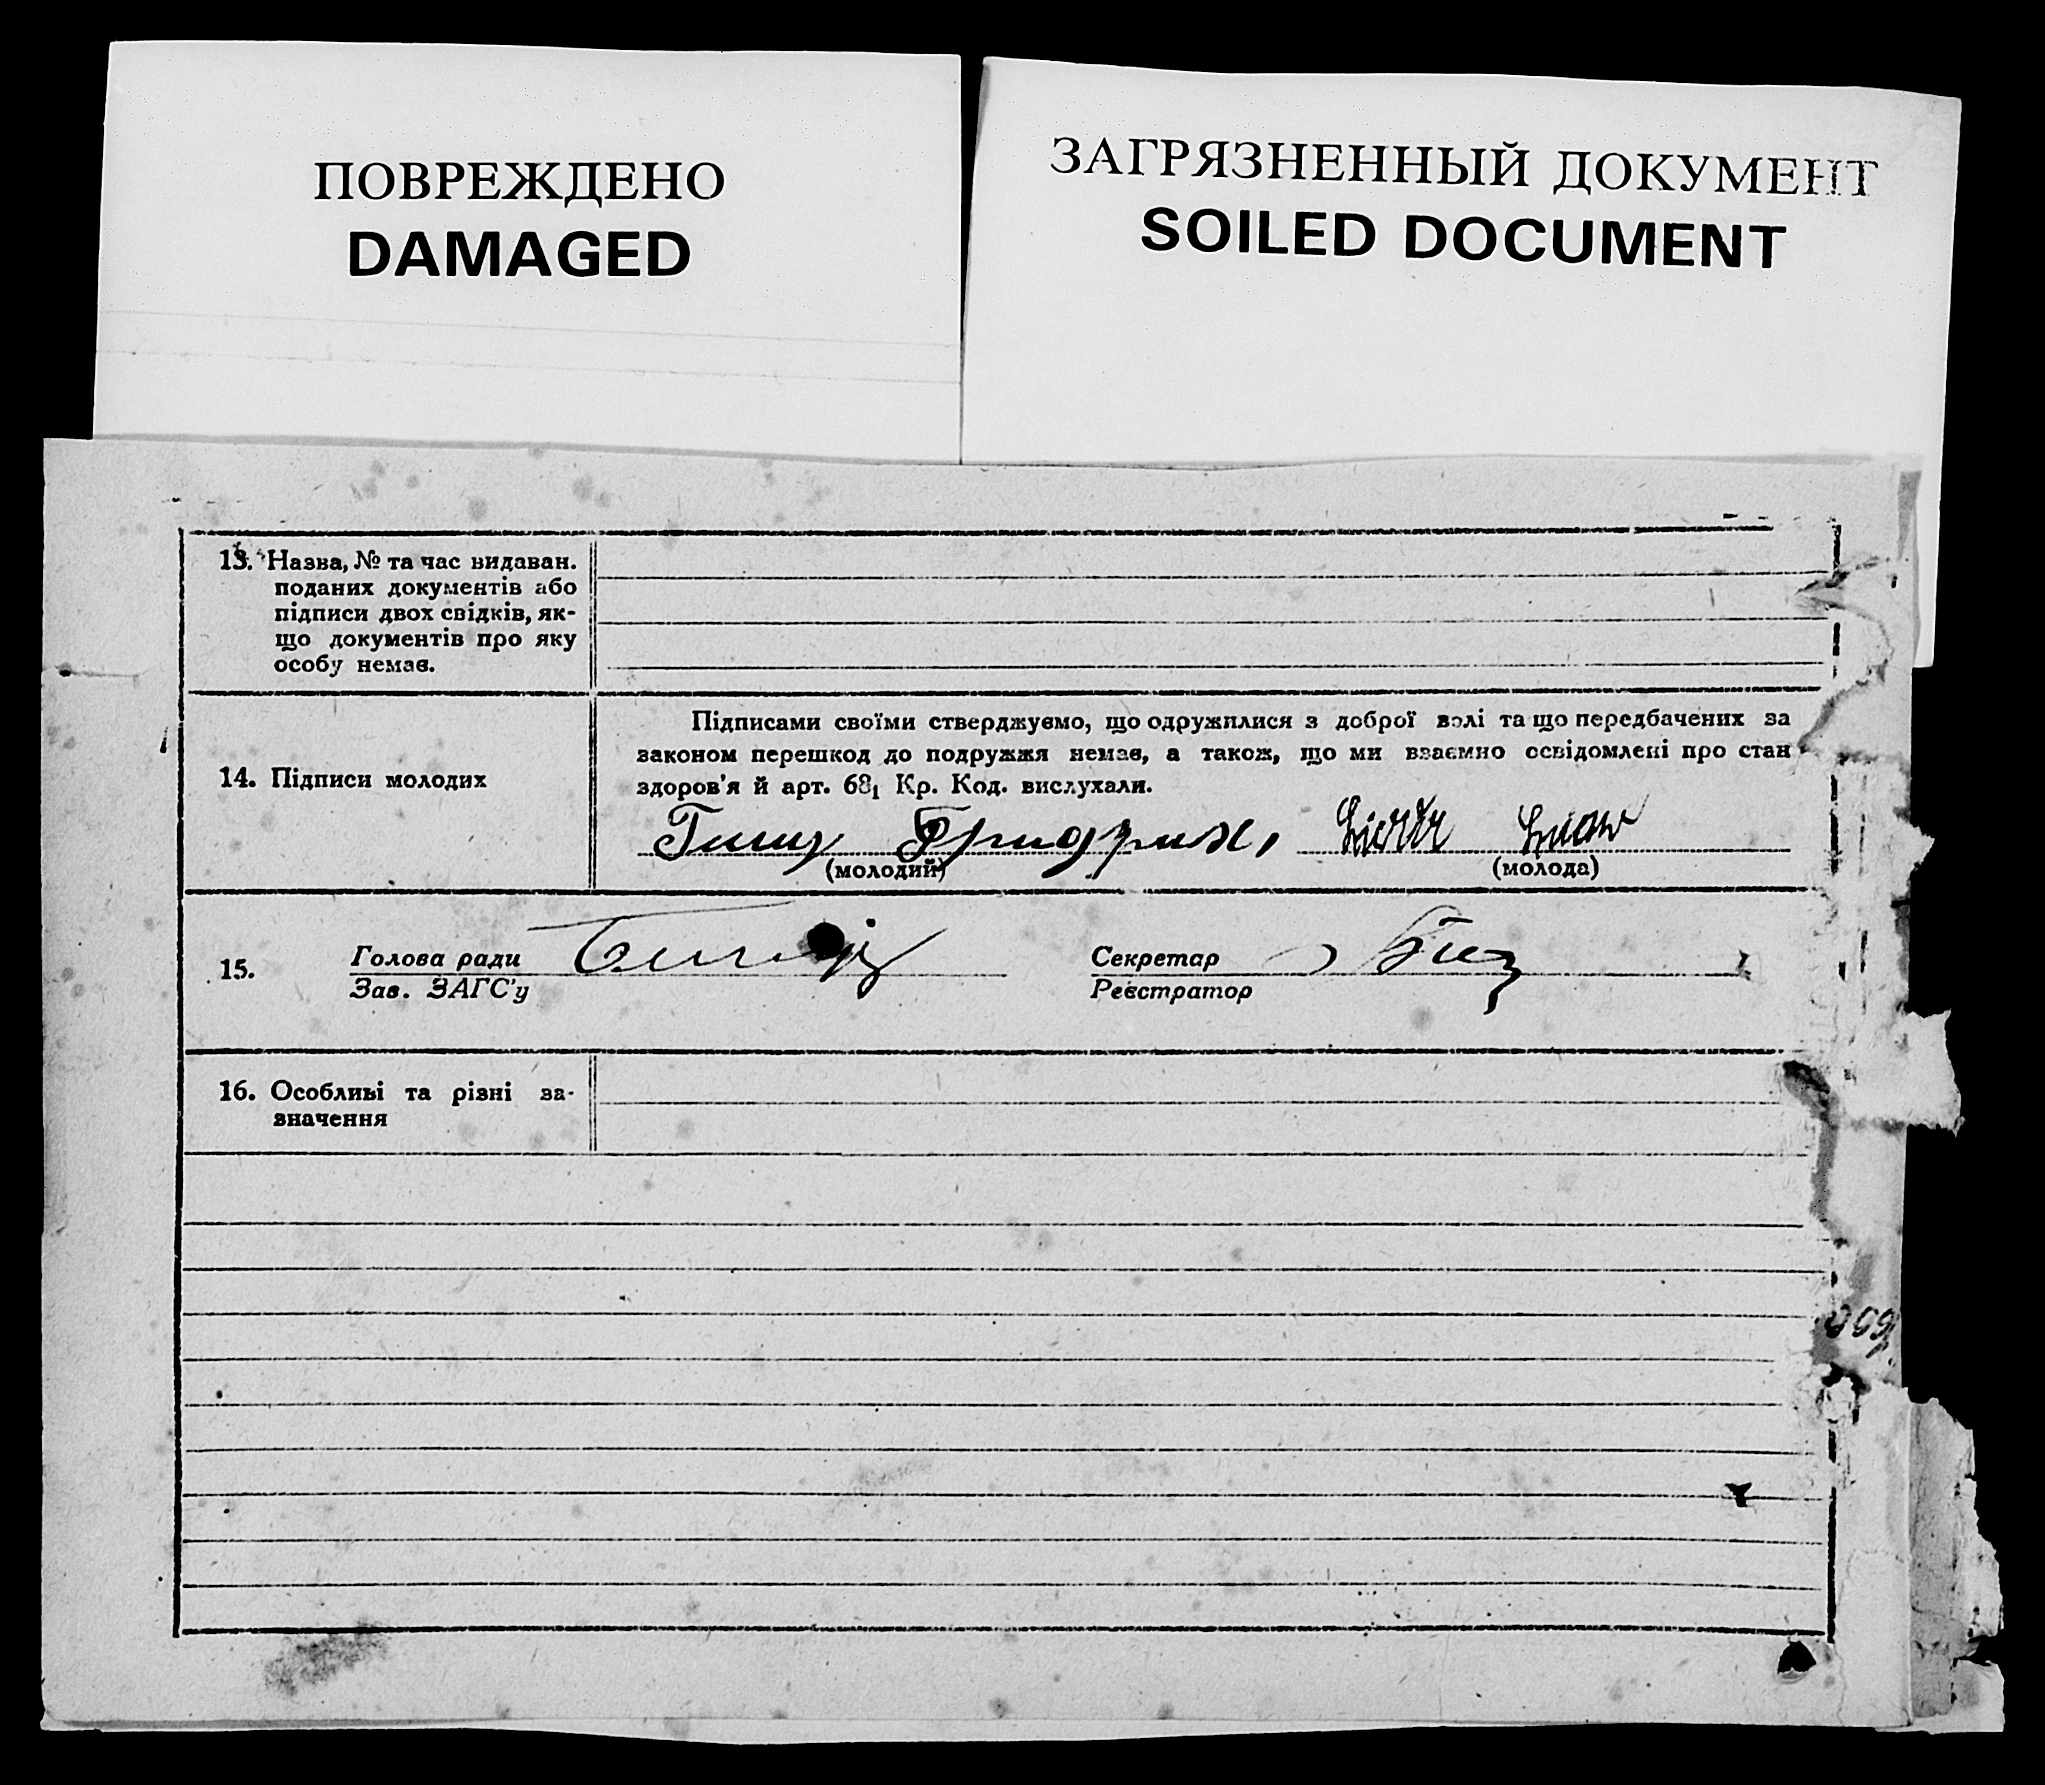 ПОВРЕЖДЕНО
DAMAGED
ЗАГРЯЗНЕННЫЙ ДОКУМЕНТ
SOILED DOCUMENT
13. Назва, № та час видаван.
поданих документів або
підписи двох свідків, як-
що документів про яку
особу немає.
14. Підписи молодих
Підписами своїми стверджуємо, що одружилися з доброї волі та що передбачених за
законом перешкод до подружжя немає, а також, що ми взаємно освідомлені про стан
здоров'я й арт. 68₁ Кр. Код. вислухали.
(молодий)
(молода)
15.
Голова ради
Зав. ЗАГС'у
Секретар
Реєстратор
16. Особливі та різні за-
значення